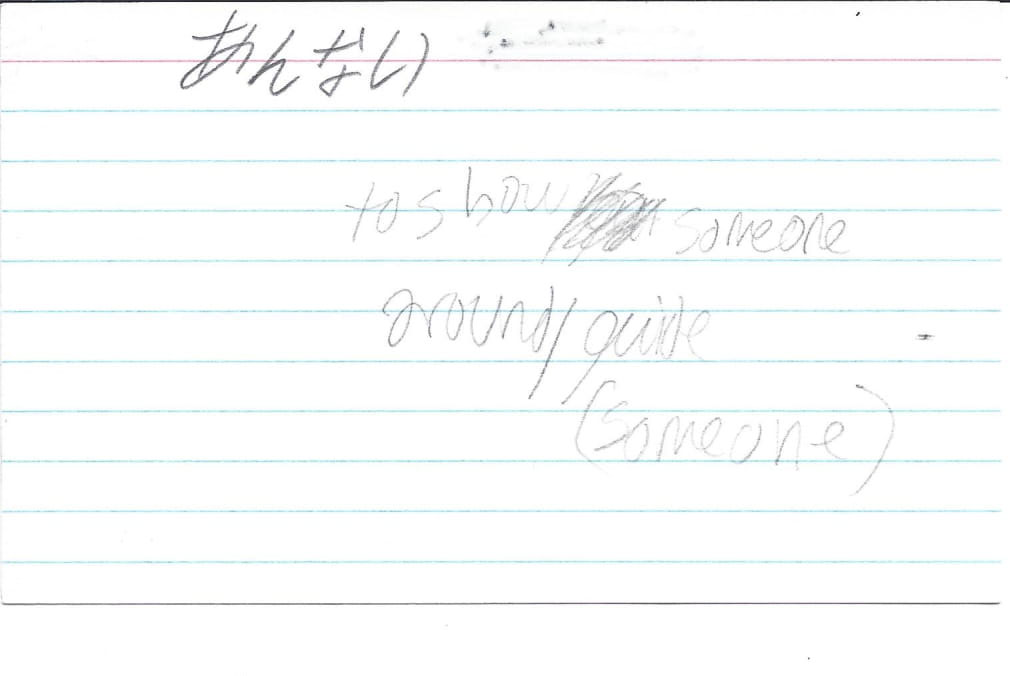 あんない
to show someone
around/guide
(someone)